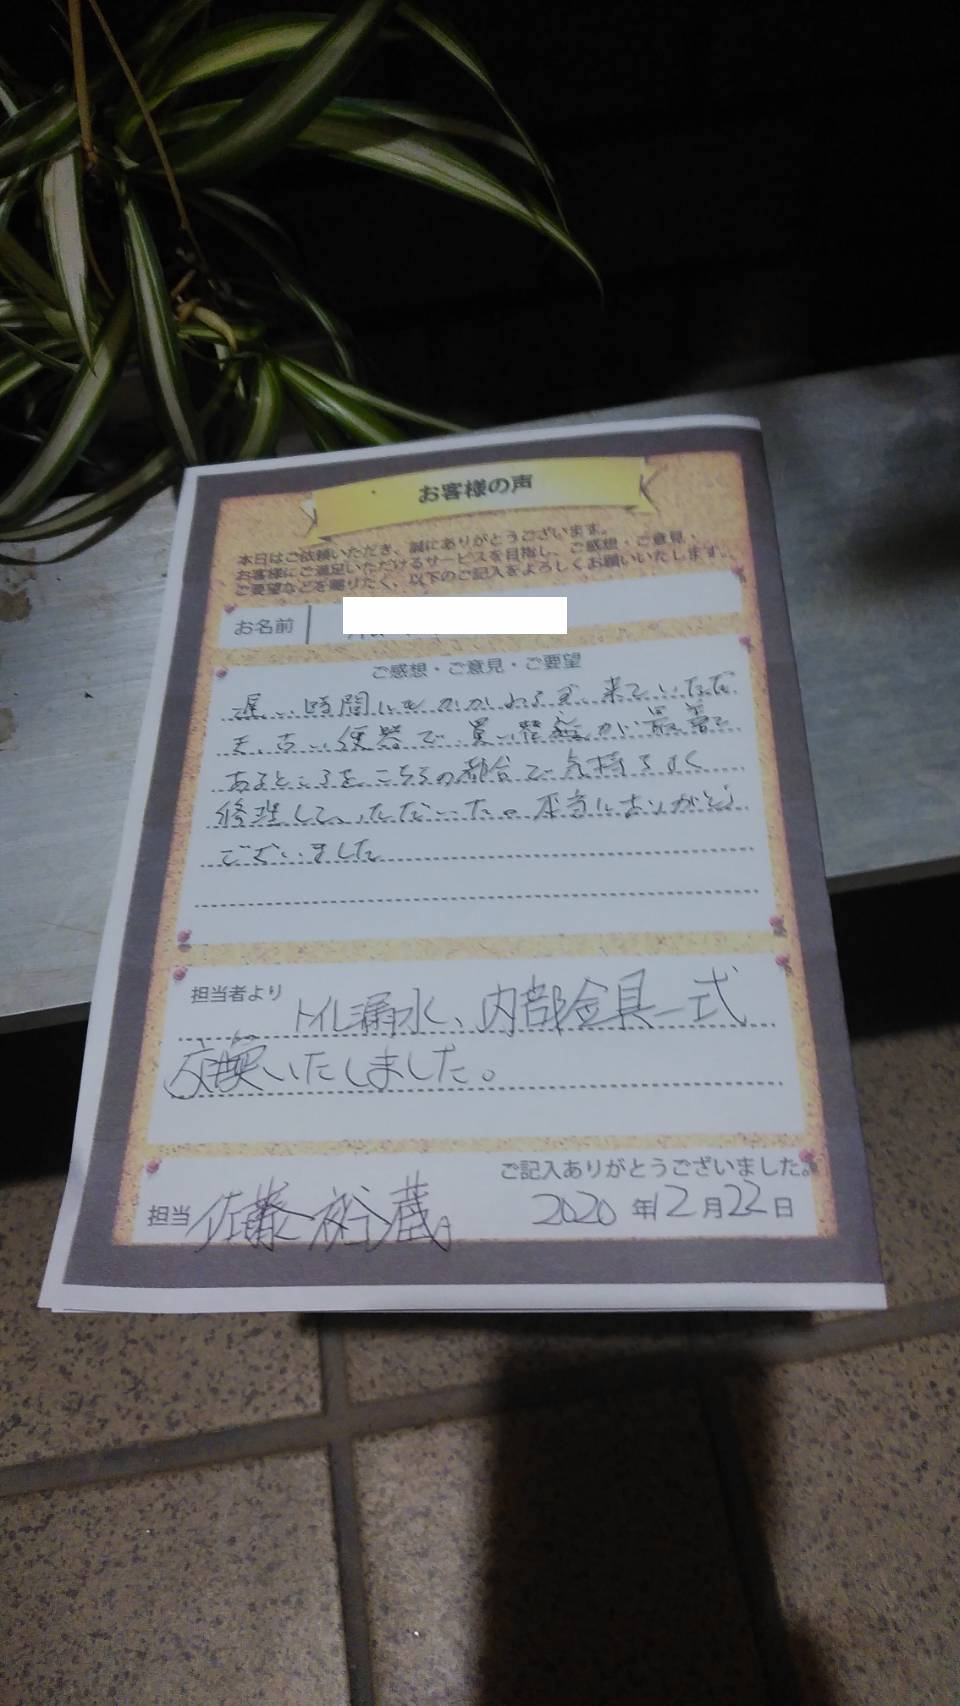 お客様の声
本日はご依頼いただき、誠にありがとうございます。
お客様にご満足いただけるサービスを目指し、ご感想・ご意見・
ご要望などを賜りたく、以下のご記入をよろしくお願いいたします。
お名前
ご感想・ご意見・ご要望
遅い時間にもかかわらず、来ていただ
き、古い便器で、買い替えが最善で
あるところを、こちらの都合で、気持ちよく
修理して、いただいた。本当にありがとう
ございました
担当者より
トイレ漏水、内部金具一式
交換いたしました。
ご記入ありがとうございました。
担当 佐藤 裕蔵 2020年12月22日